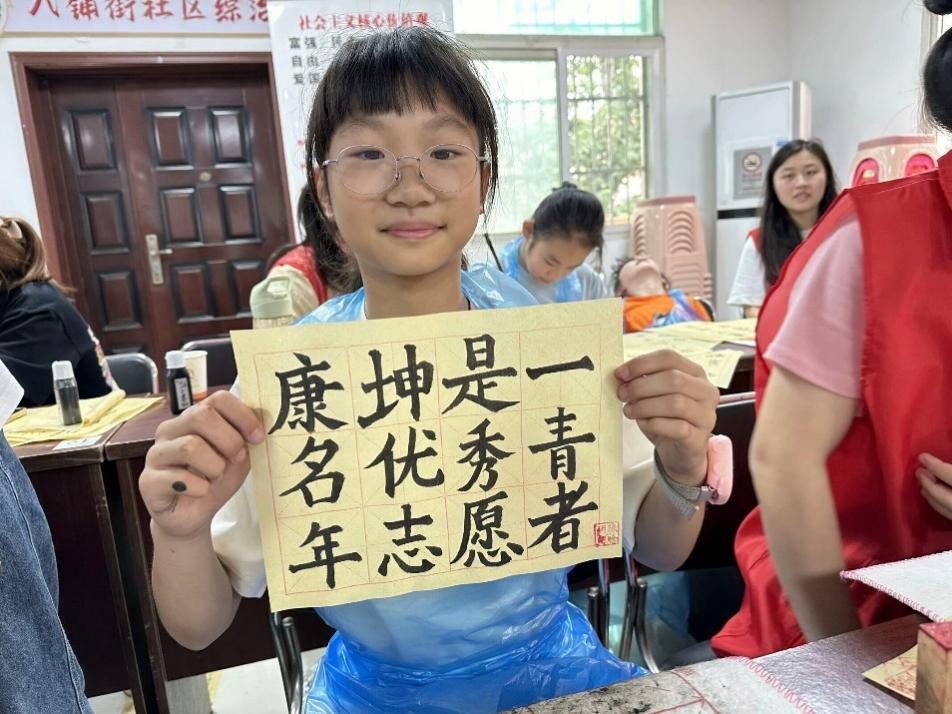 八铺街社区综治
社会主义核心价值观
富强 民
自由
爱国
康坤是一
名优秀青
年志愿者